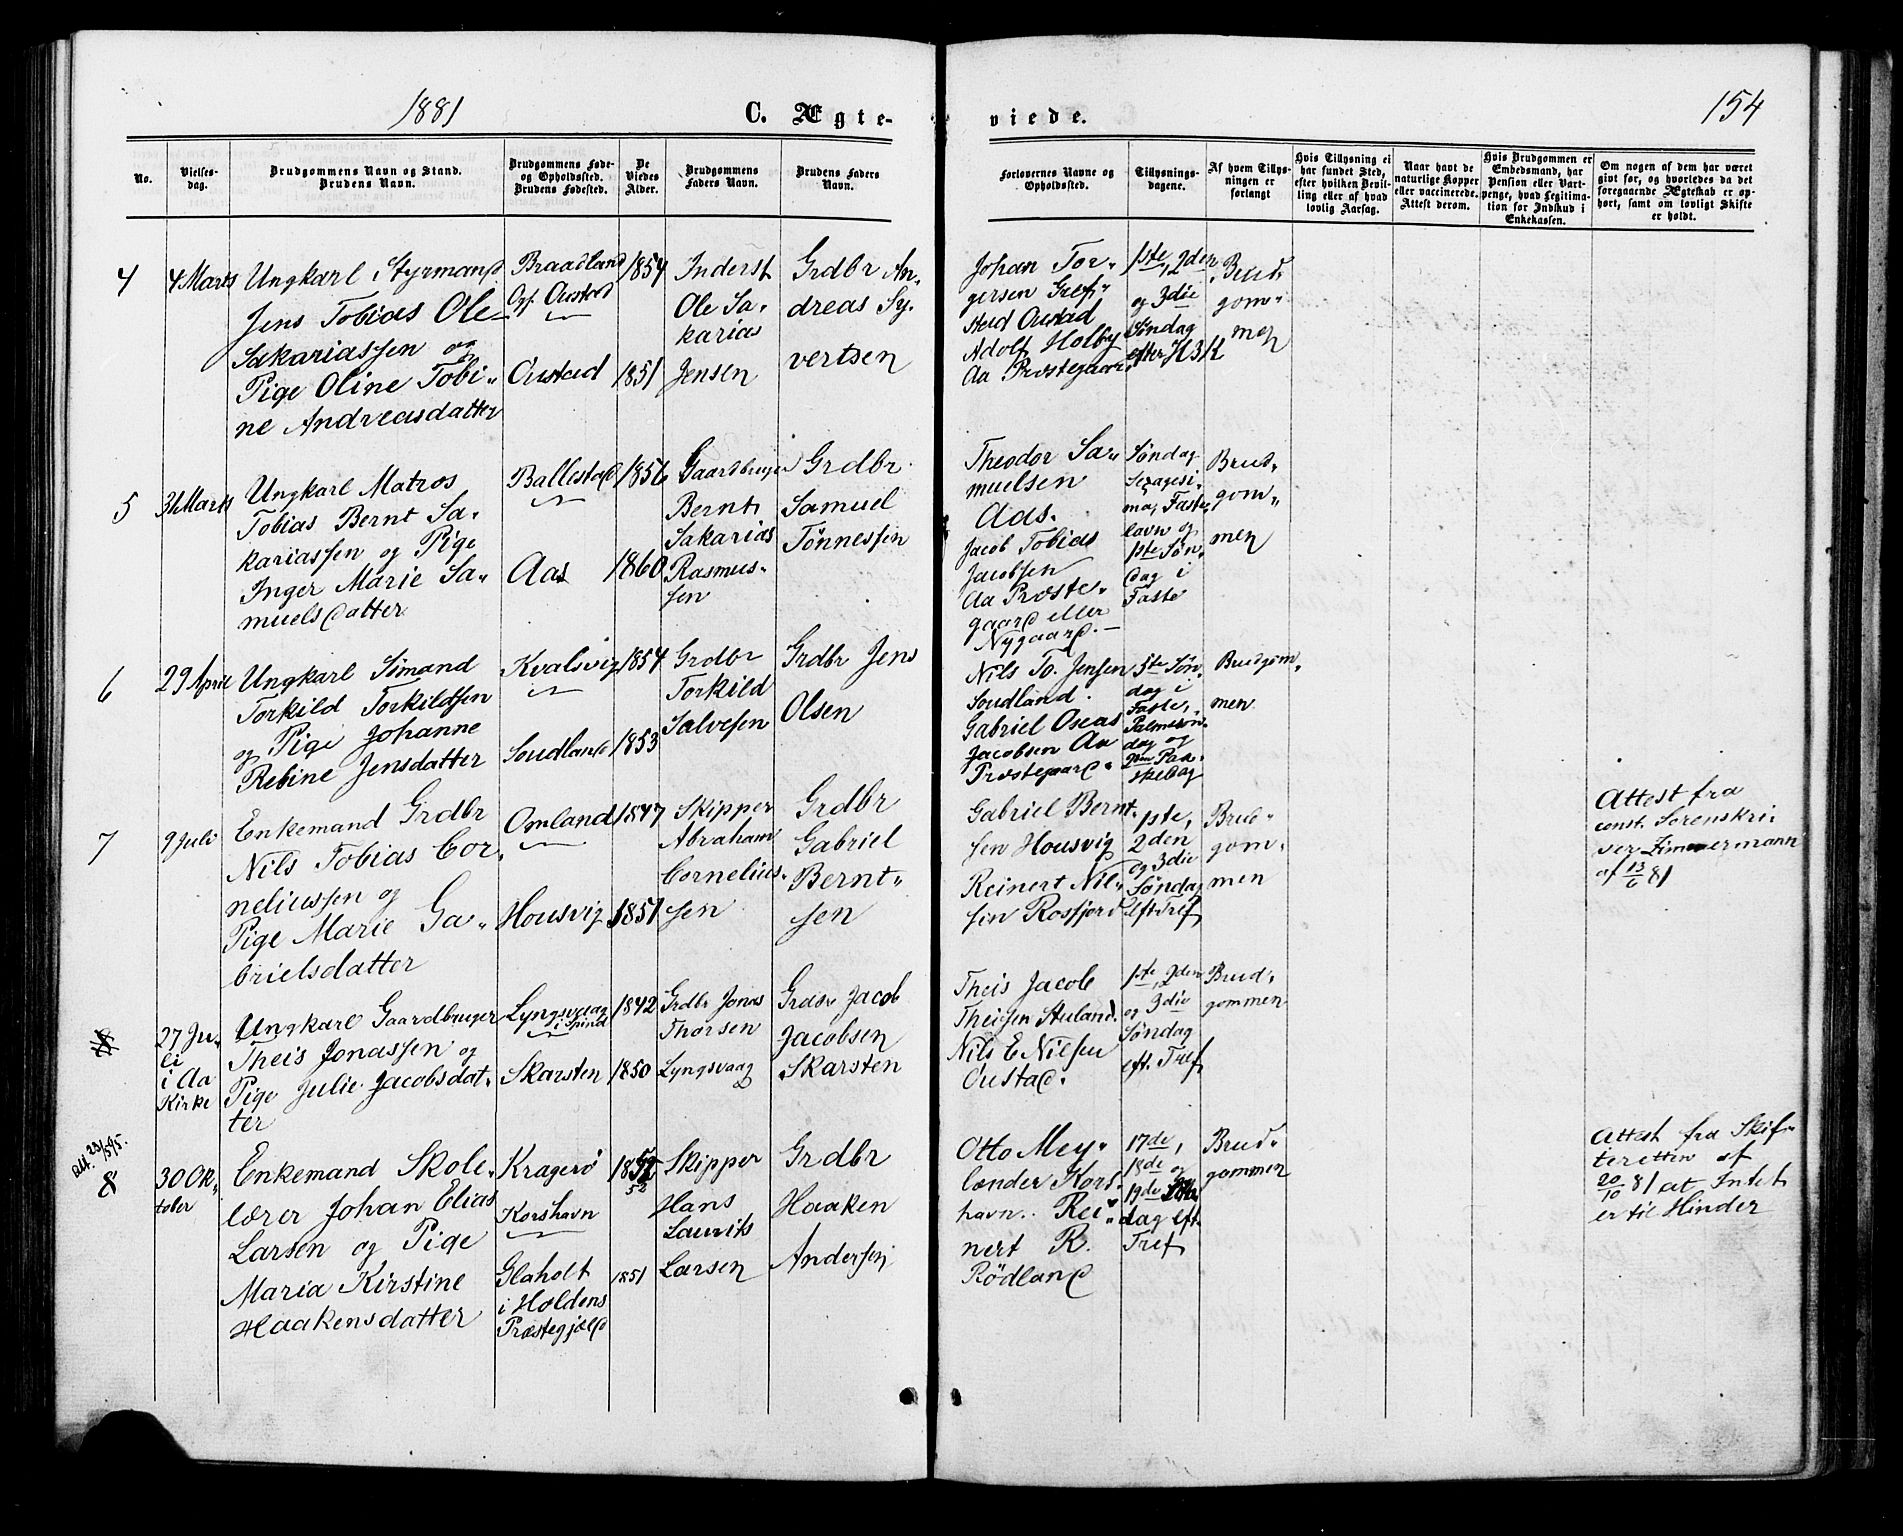 1881
C. Ægte-
viede.
154
No.
Vielses-
dag.
Brudgommens Navn og Stand.
Brudens Navn.
Brudgommens Føde-
og Opholdssted.
Brudens Fødested.
De
Viedes
Alder.
Brudgommens
Faders Navn.
Brudens Faders
Navn.
Forlovernes Navne og
Opholdssted.
Tillysnings-
dagene.
Af hvem Tillys-
ningen er
forlangt
Hvis Tillysning ei
har fundet Sted,
efter hvilken Bevil-
ling eller af hvad
lovlig Aarsag.
Naar havt de
naturlige Kopper
eller vaccinerede.
Attest derom.
Hvis Brudgommen er
Embedsmand, har
Pension eller Vart-
penge, hvad Legitima-
tion for Indskud i
Enkekassen.
Om nogen af dem har været
gift før, og hvorledes da det
foregaaende Ægteskab er op-
hørt, samt om lovligt Skifte
er holdt.
4
4 Marts
Ungkarl, Styrmand
Jens Tobias Ole
Sakariassen og
Pige Oline Tobi-
ne Andreasdatter
Braadland
Opf. Oustad
Oustad
1854
1851
Inderst
Ole Sa-
karias
Jensen
Grdbr An-
dreas Sy-
vertsen
Johan Tor-
gersen Gref-
sted Oustad
Adolf Holby
Aa Prestegaard
1ste, 2den
og 3die
Søndag
efter H 3 K
Brud-
gom-
men
5
31 Marts
Ungkarl Matros
Tobias Bernt Sa-
kariassen og Pige
Inger Marie Sa-
muelsdatter
Ballestad
Aas
1856
1860
Gaardbruger
Bernt
Sakarias
Rasmus-
sen
Grdbr
Samuel
Tønnessen
Theodor Sa-
muelsen
Aas.
Jacob Tobias
Jacobsen
Aa Præste-
gaard eller
Nygaard.
Søndag
Sexagesi-
ma, Faste-
lavn og
1ste Søn-
dag i
Faste
Brud-
gom-
men
6
29 April
Ungkarl Sømand
Torkild Torkildsen
og Pige Johanne
Rebine Jensdatter
Kvalsvig
Soudland
1854
1853
Grdbr
Torkild
Salvesen
Grdbr Jens
Olsen
Nils To. Jensen
Soudland.
Gabriel Oseas
Jacobsen Aa
Præstegaard.
5te Søn-
dag i
Faste,
Palmesøn-
dag og
2den Paa-
skedag
Brudgom-
men
7
9 Juli
Enkemand Grdbr
Nils Tobias Cor-
neliussen og
Pige Marie Ga-
brielsdatter
Omland
Housvig
1847
1851
Skipper
Abraham
Cornelius-
sen
Grdbr
Gabriel
Bernt-
sen
Gabriel Bernt-
sen Housvig
Reinert Nil-
sen Rosfjord
1ste,
2den
og 3die
Søndag
eft Tref
Brud-
gom-
men
Attest fra
const. Sorenskri-
ver Zimmermann
af 13/6 81
27 Ju-
li
i Aa
Kirke
Ungkarl Gaardbruger
Theis Jonassen og
Pige Julie Jacobsdat-
ter
Lyngsvaag
i Spind
Skarsten
1842
1850
Grdbr Jonas
Thorsen
Lyngsvaag
Grdbr Jacob
Jacobsen
Skarsten
Theis Jacob
Theisen Auland.
Nils E Nilsen
Oustad.
1ste, 2den
og 3die
Søndag
eft. Tref
Brud-
gommen
Att. 23/5 95.
8
30 Ok-
tober
Enkemand Skole-
lærer Johan Elias
Larsen og Pige
Maria Kirstine
Haakensdatter
Kragerö
Korshavn
Glaholt
i Holdens
Præstegjæld
52
1851
Skipper
Hans
Laurits
Larsen
Grdbr
Haaken
Andersen
Otto Mey-
lænder Kors-
havn. Rei-
nert R.
Rödland
17de,
18de og
19de Søn-
dag eft
Tref
Brud-
gommen
Attest fra Skif-
teretten af
20/10 81 at Intet
er til Hinder